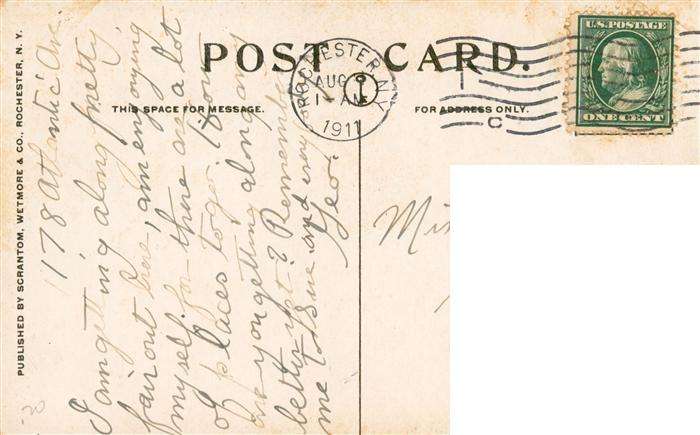 POST CARD.
THIS SPACE FOR MESSAGE.
FOR ADDRESS ONLY.
ROCHESTER, N.Y.
AUG
1 - AM
1911
C
U.S. POSTAGE
ONE CENT
PUBLISHED BY SCRANTOM, WETMORE & CO., ROCHESTER, N. Y.
178 Atlantic Ave
I am getting along pretty
fair out here, am enjoying
myself for there are a lot
of places to go. How
are you getting along any
better yet? Remember
me to Sue and
Geo.